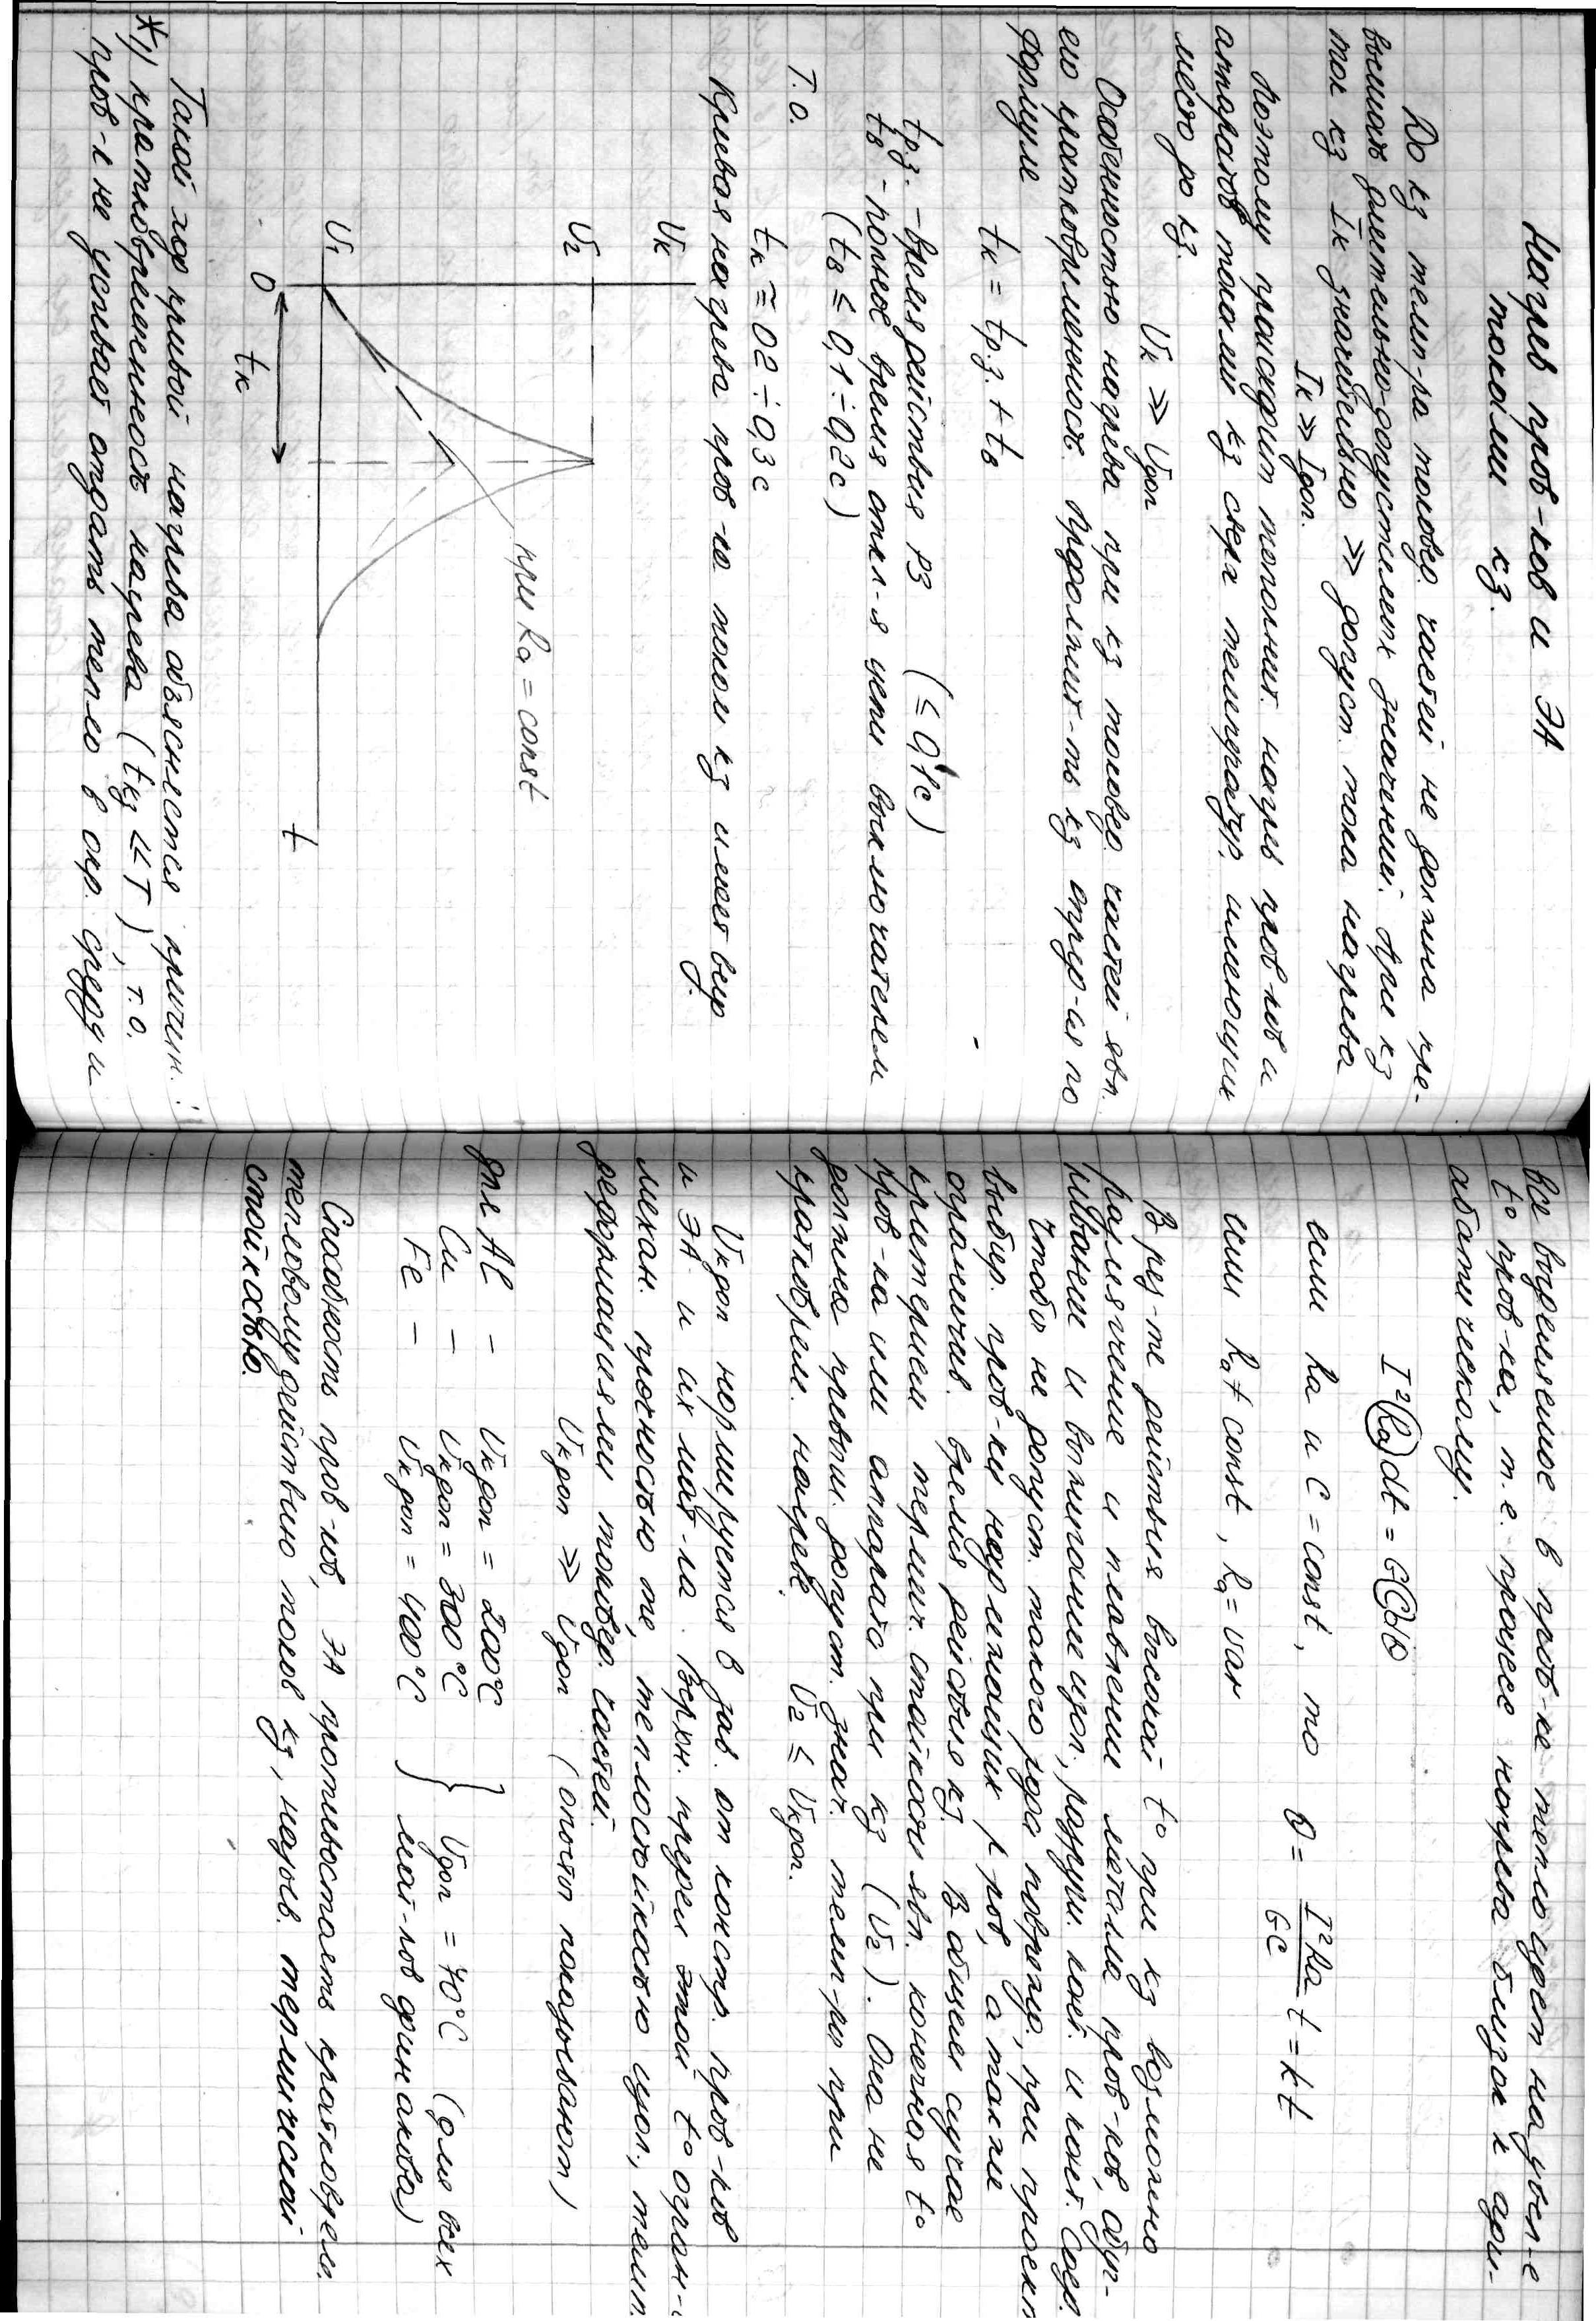 Нагрев пров-ков и ЭА
токами кз.
До кз темп-ра токовед. частей не должна пре-
вышать длительно-допустимых значений. При кз
ток кз Iк значительно >> допуст. тока нагрева
Iк >> Iдоп.
Поэтому происходит дополнит. нагрев пров-ков и
аппаратов токами кз сверх температур, имеющих
место до кз.
υк >> υдоп
Особенностью нагрева при кз токовед. частей явл.
его кратковременность. Продолжит-ть кз опред-ся по
формуле
tк = tр.з. + tв
tрз. - время действия РЗ (≤ 0,1с)
tв - полное время откл-я цепи выключателем
(tв ≤ 0,1 ÷ 0,2с)
Т.о.
tк ≈ 02 ÷ 0,3с
Кривая нагрева пров-ка током кз имеет вид.
υк
υ2
при Ra = const
υ1
0
t
tк
Такой ход кривой нагрева объясняется причин. :
*1) кратковременность нагрева (tкз << T), т.о.
пров-к не успевает отдать тепло в окр. среду и
все выделяемое в пров-ке тепло идет на увел-е
t° пров-ка, т.е. процесс нагрева близок к адиа-
абатическому.
I²Ra dt = GCdθ
если Ra и C = const, то θ = I²Ra/GC t = kt
если Ra ≠ const, Ra = var
В рез-те действия высокой t° при кз возможно
размягчение и плавление металла пров-ков, обуг-
ливание и воспламенение изол., разруш. конт. и конт. соед.
Чтобы не допуст. такого рода поврежд., при проект
выбир. пров-ки надлежащих разм, а также
огранич. время действия кз. В общем случае
критерием термич. стойкости явл. конечная t°
пров-ка или аппарата при кз (υ2). Она не
должна превыш. допуст. знач. темп-ры при
кратковрем. нагреве. υ2 ≤ υк доп.
υк доп нормируется в зав. от констр. пров-ков
и ЭА и их мат-ла. Верхн. предел этой t° огран-
механ. прочностью Ме, теплостойкостью изол., темп.
деформациями токовед. частей.
υк доп >> υдоп (опыт показывает)
для Al - υк доп = 200°C
Cu - υк доп = 300°C
Fe - υк доп = 400°C
υдоп = 70°C (для всех
мат-лов одинакова)
Способность пров-ков, ЭА противостоять кратковрем.
тепловому действию токов кз, назыв. термической
стойкостью.